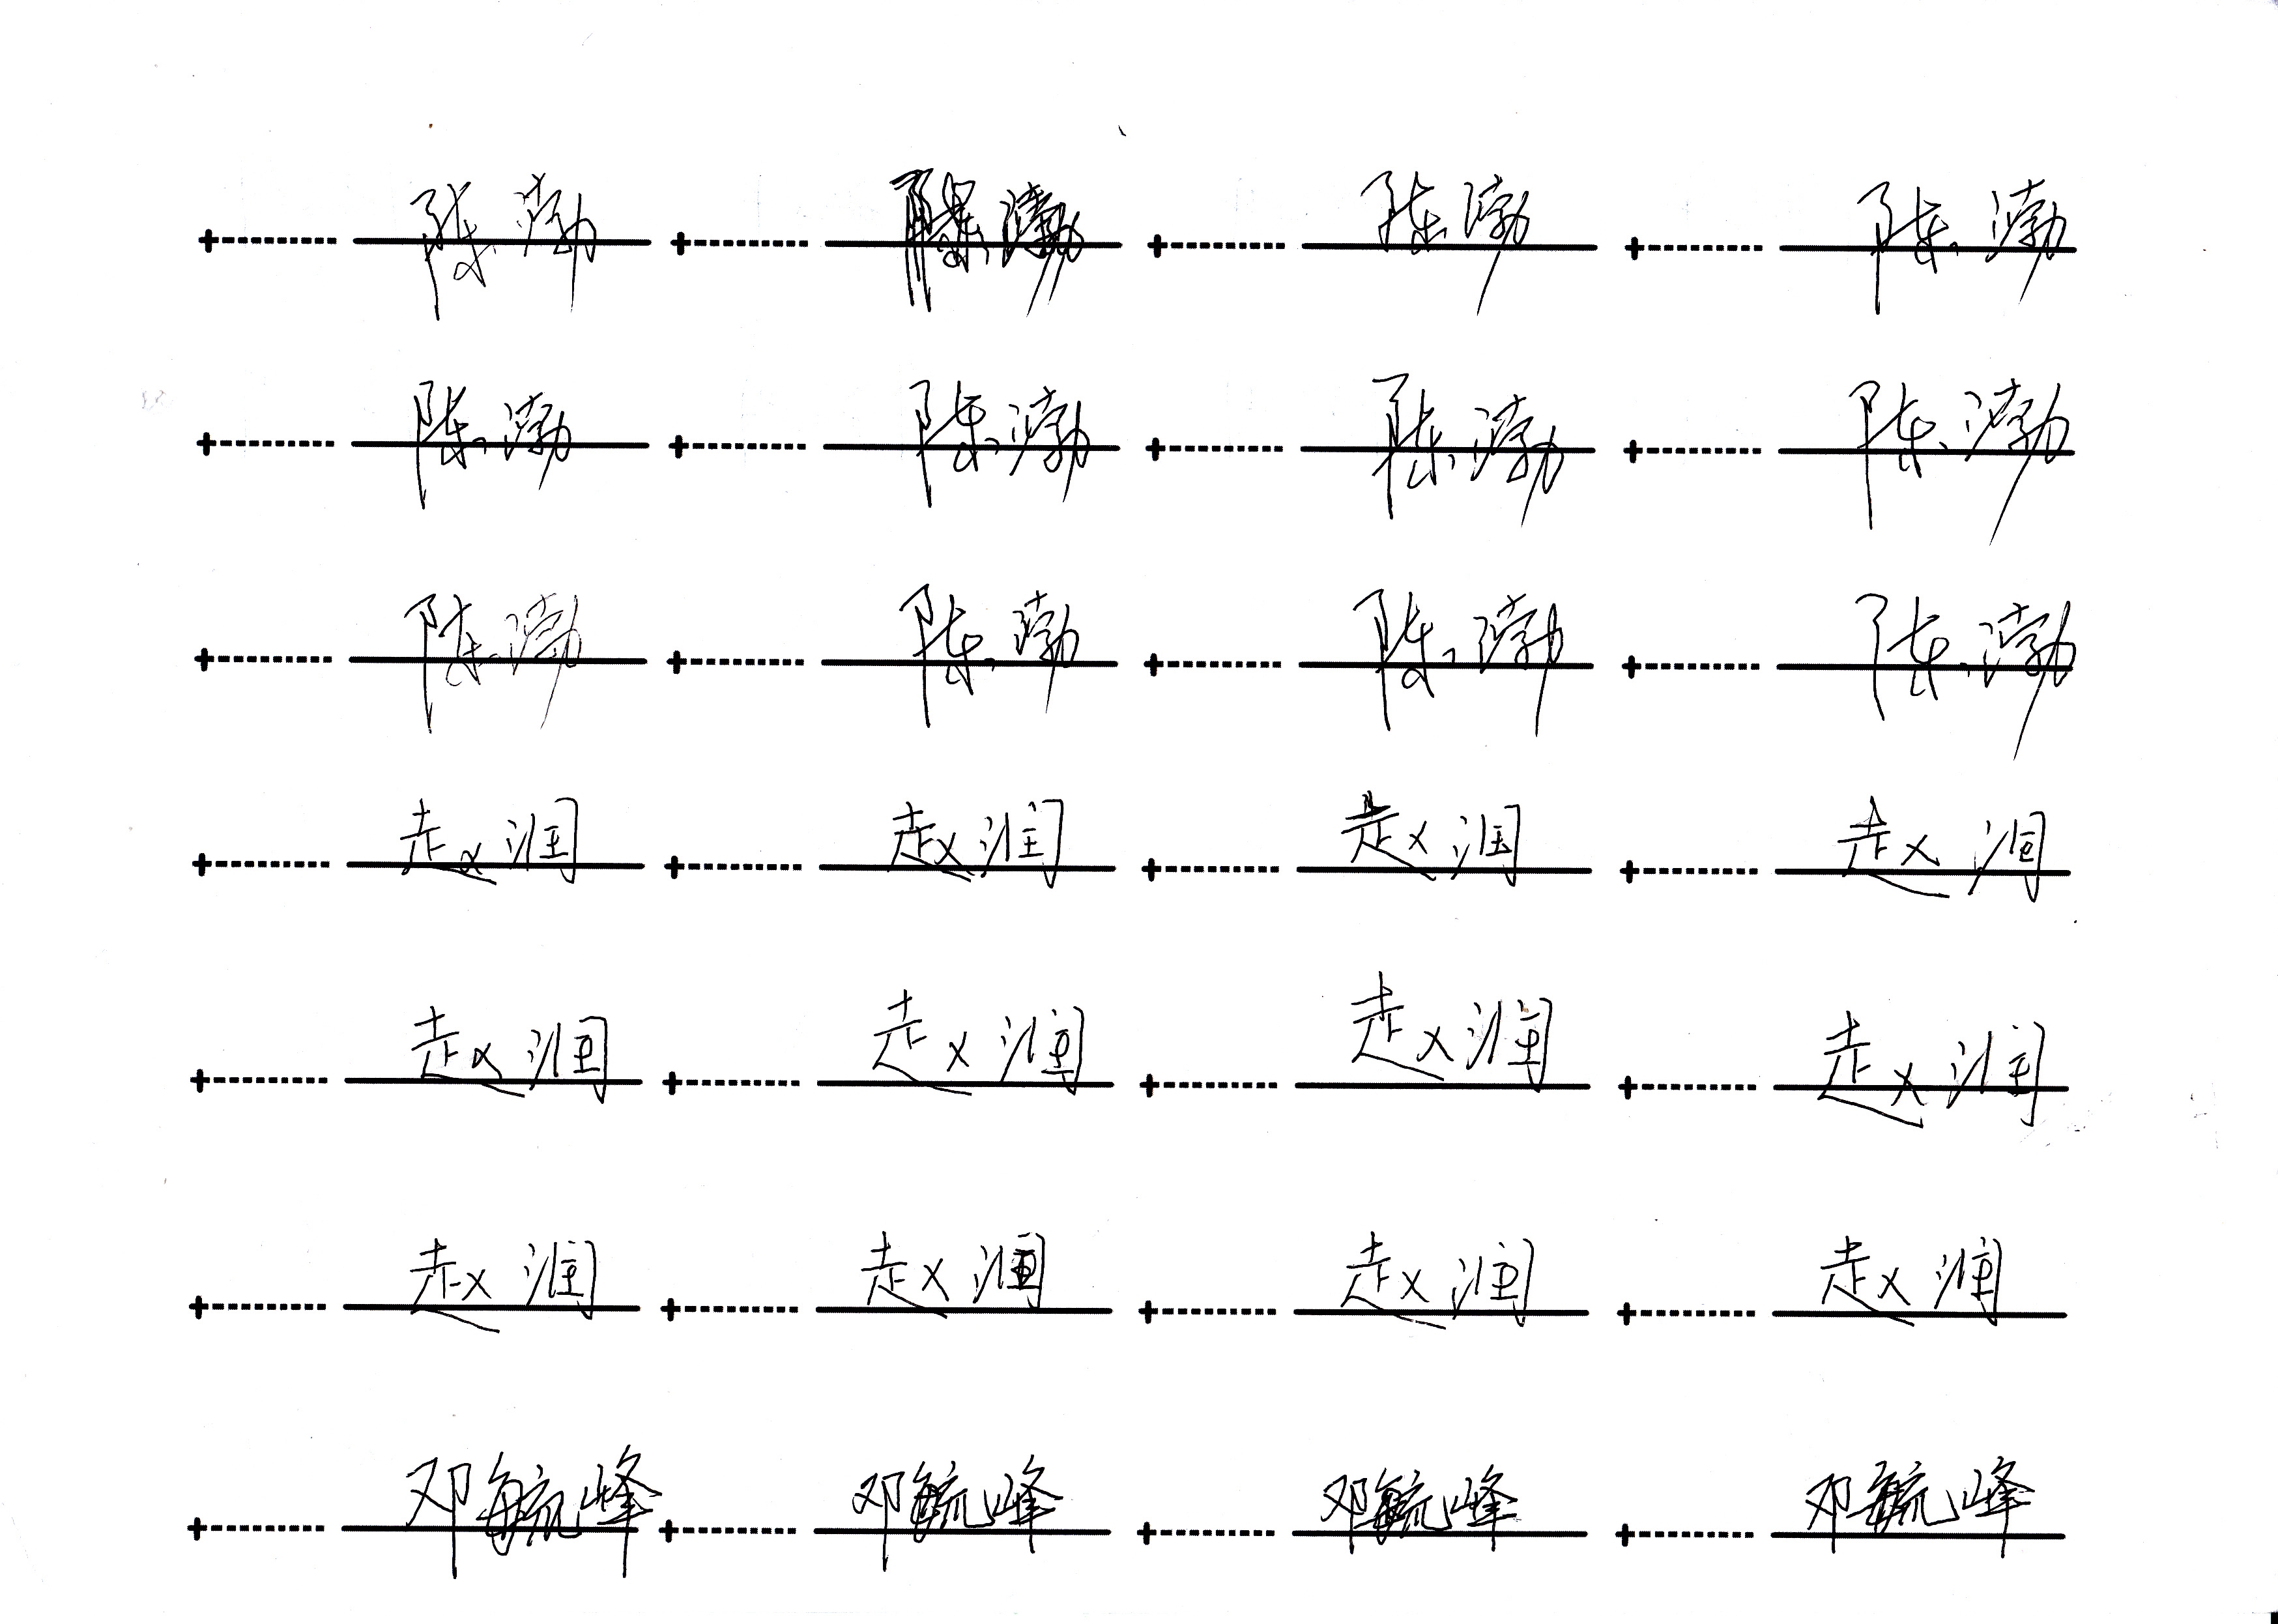 陈渤 陈渤 陈渤 陈渤
陈渤 陈渤 陈渤 陈渤
陈渤 陈渤 陈渤 陈渤
赵润 赵润 赵润 赵润
赵润 赵润 赵润 赵润
赵润 赵润 赵润 赵润
邓毓峰 邓毓峰 邓毓峰 邓毓峰